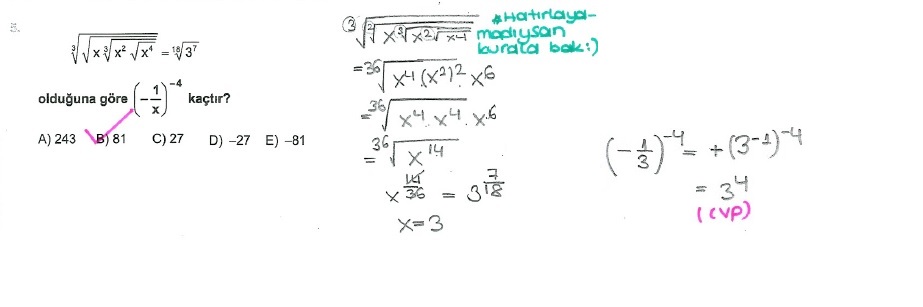 5.
∛√(x ∛(x² √(x⁴))) = ¹⁸√(3⁷)
olduğuna göre (-1/x)⁻⁴ kaçtır?
A) 243 B) 81 C) 27 D) -27 E) -81
③√(²√(x ³√(x² √(x⁴))))
#Hatırlaya-
madıysan
burata bak:)
= ³⁶√(x⁴(x²)² · x⁶)
= ³⁶√(x⁴ · x⁴ · x·⁶)
= ³⁶√(x¹⁴)
x^(14/36) = 3^(7/18)
x = 3
(-1/3)⁻⁴ = +(3⁻¹)⁻⁴
= 3⁴
(cvp)